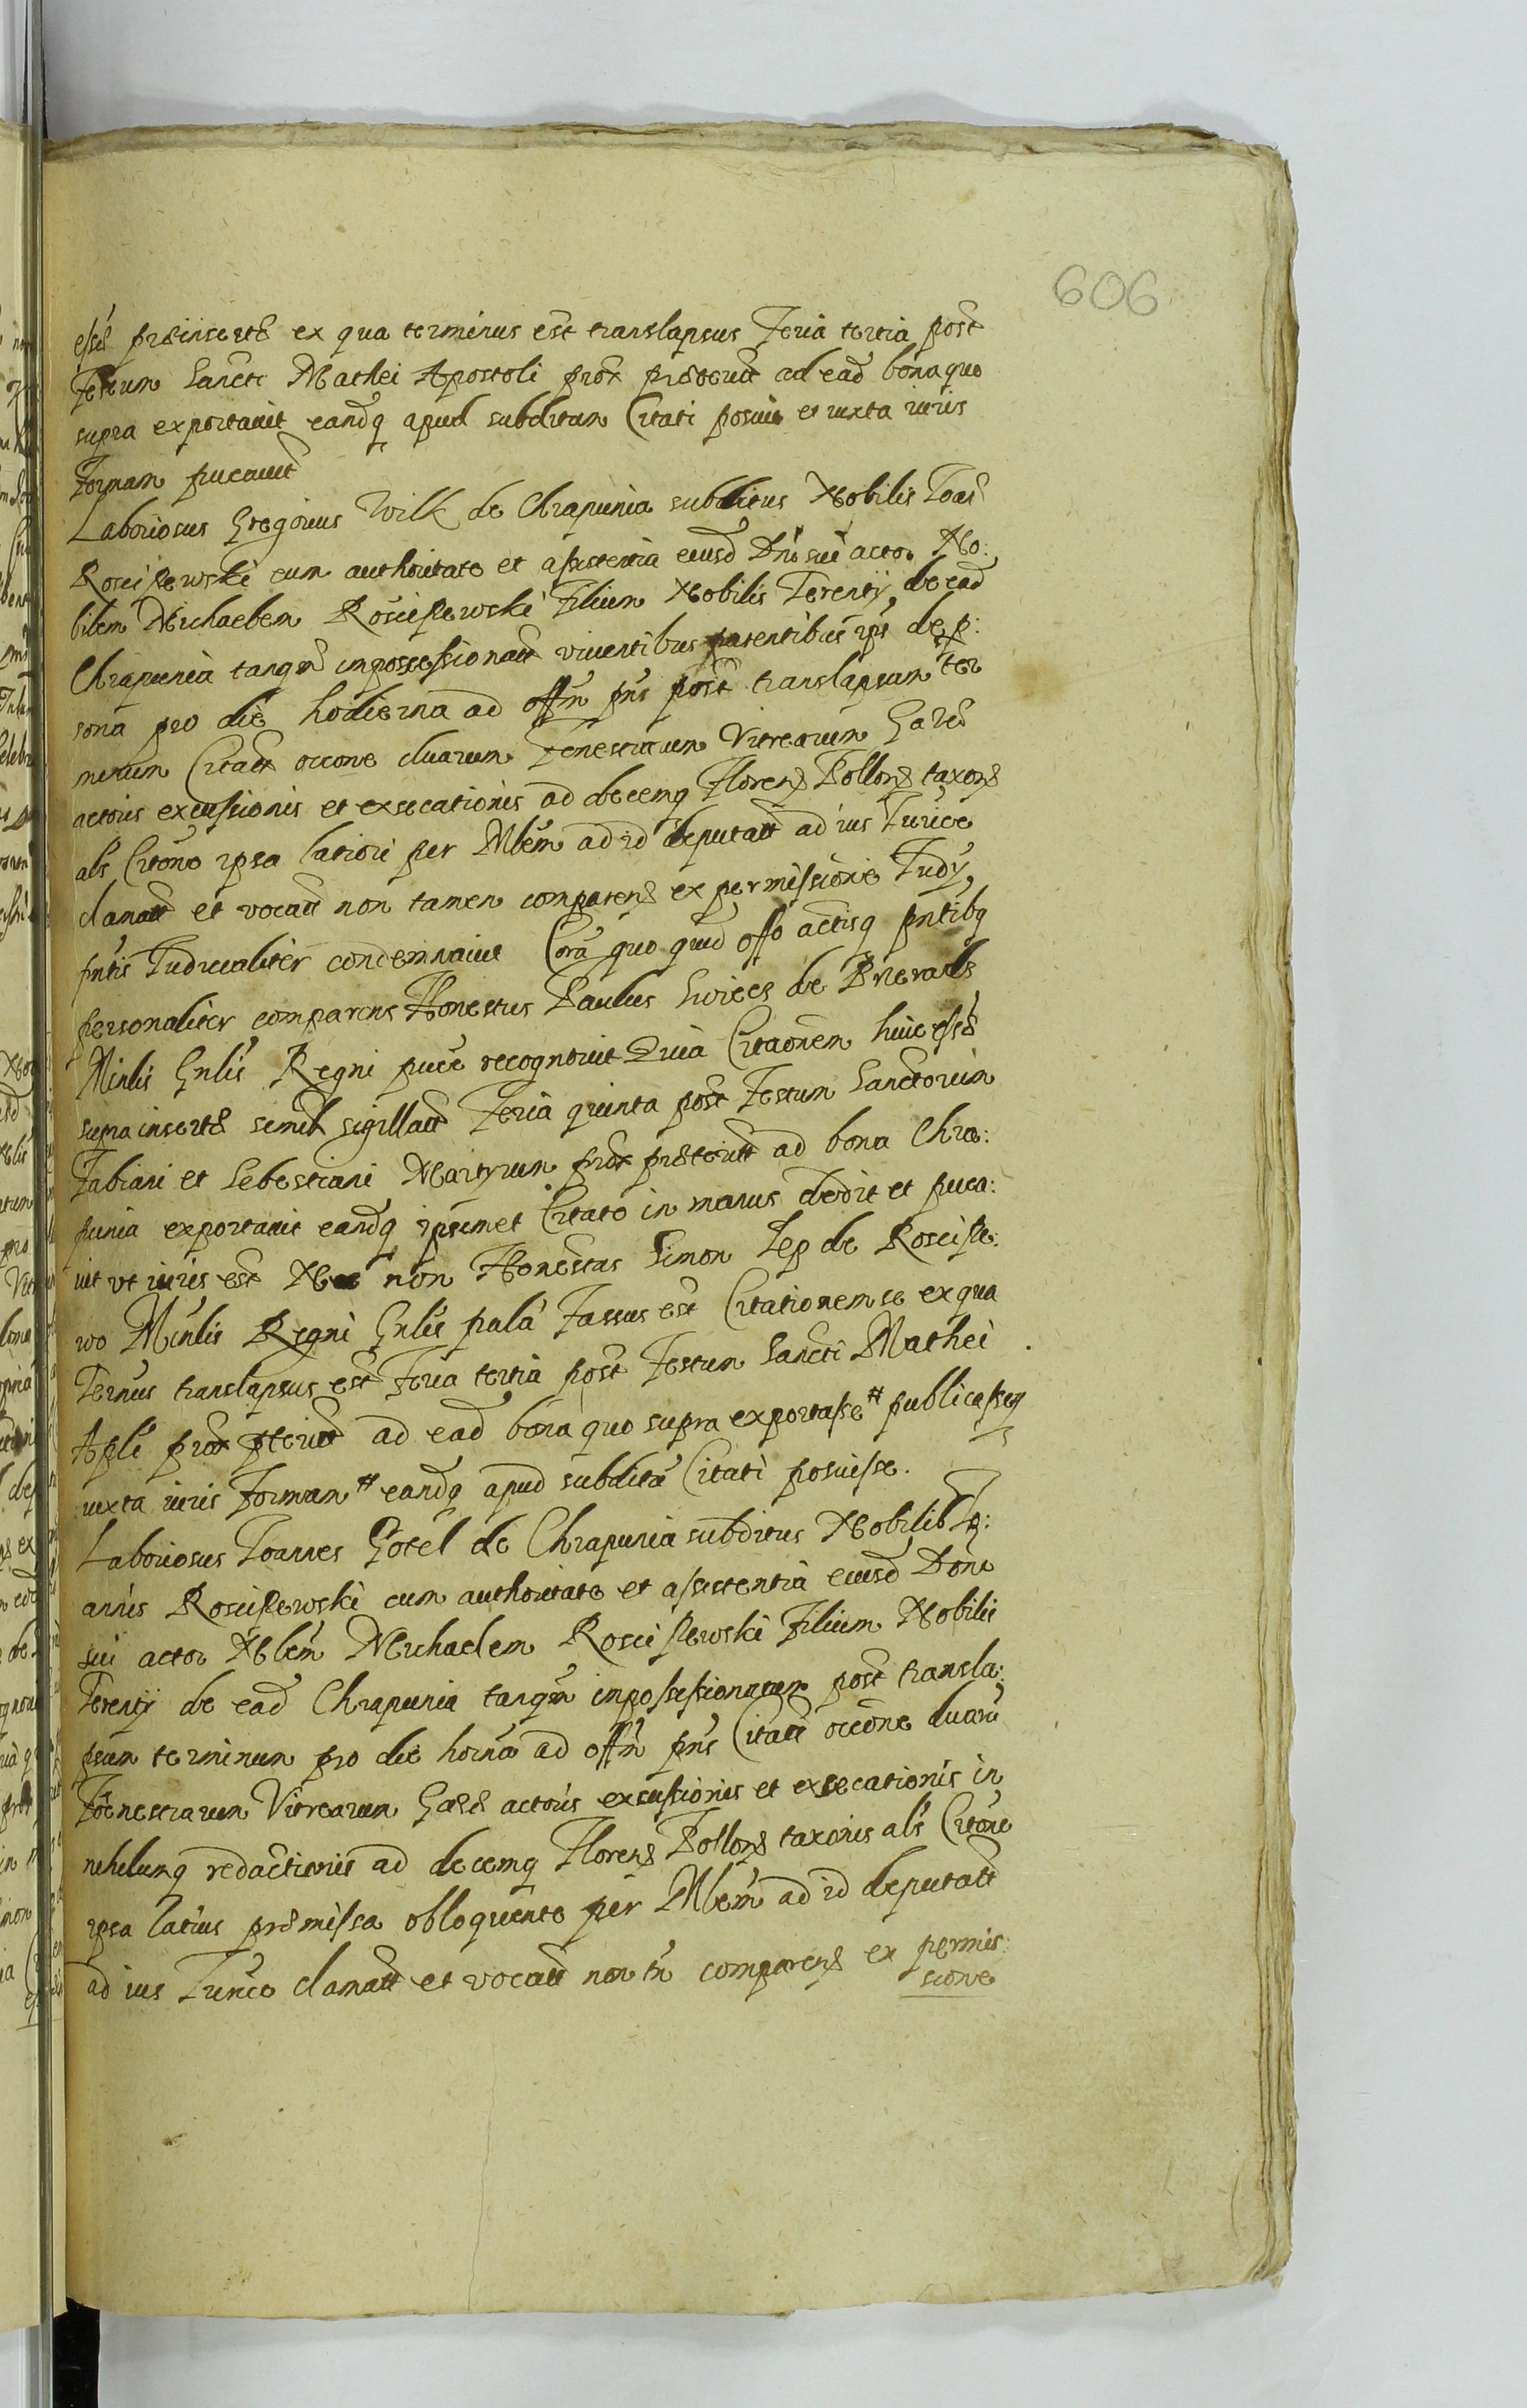 606
essē præinsertē ex qua terminus est translapsus Feria tertia post
Festum Sancti Mathei Apostoli prox præterit ad ead bona quo
supra exportavit eandq apud subditum Citati posuit et iuxta iuris
Formam pucavit
Laboriosus Gregorius Wilk de Chrapunia subditus Nobilis Ioan
Roscissewski cum authoritate et assistentia eiusd Dni sui actor No:
bilem Michaelem Roscissewski Filium Nobilis Terentij de ead
Chrapunia tanqm impossessionatt viventibus parentibus ips de p:
sona pro die hodierna ad offm pns post translapsum ter
minum Citatt occone duarum Fenestrarum Vitrearum
actoris excussionis et exsecationis ad decemq Floren Pollon taxon
als Citone ipsa latiori per Mlem ad id deputatt ad ius Tunce
clamatt et vocatt non tamen comparen ex permissione Iudy
pntis Iudicialiter condemnavit Cora quo quid offo actisq pntibq
personaliter comparens Honestus Paulus de
Minlis Gnlis Regni puce recognovit Quia Citaonem huic essē
supra insertē simul sigillatt Feria quinta post Festum Sanctorum
Fabiani et Sebestiani Martyrum prox præterit ad bona Chra:
punia exportavit eandq ipsimet Citato in manus dedit et puca:
vit ut iuris est Nec non Honestus Simon Lep de Roscisse:
wo Minlis Regni Gnlis pala Fassus est Citationem se ex qua
Ternus translapsus est Feria tertia post Festum Sancti Mathei
Apli prox pterit ad ead bona quo supra exportasse # publicasseq
iuxta iuris Formam # eandq apud subdita Citati posuisse.
Laboriosus Ioannes Gosel de Chrapunia subditus Nobilis Io:
annis Roscissewski cum authoritate et assistentia eiusd Doni
sui actor Nblem Michaelem Roscissewski Filium Nobilis
Terentij de ead Chrapunia tanqm impossessionatum post transla:
psum terminum pro die horna ad offm pns Citatt occone duaru
Foenestrarum Vitrearum actoris excussionis et exsecationis in
nihilumq redactionis ad decemq Floren Pollon taxonis als Citone
ipsa latius præmissa obloquente per Mlem ad id deputatt
ad ius Tunce clamatt et vocatt non tn comparen ex permis:
sione